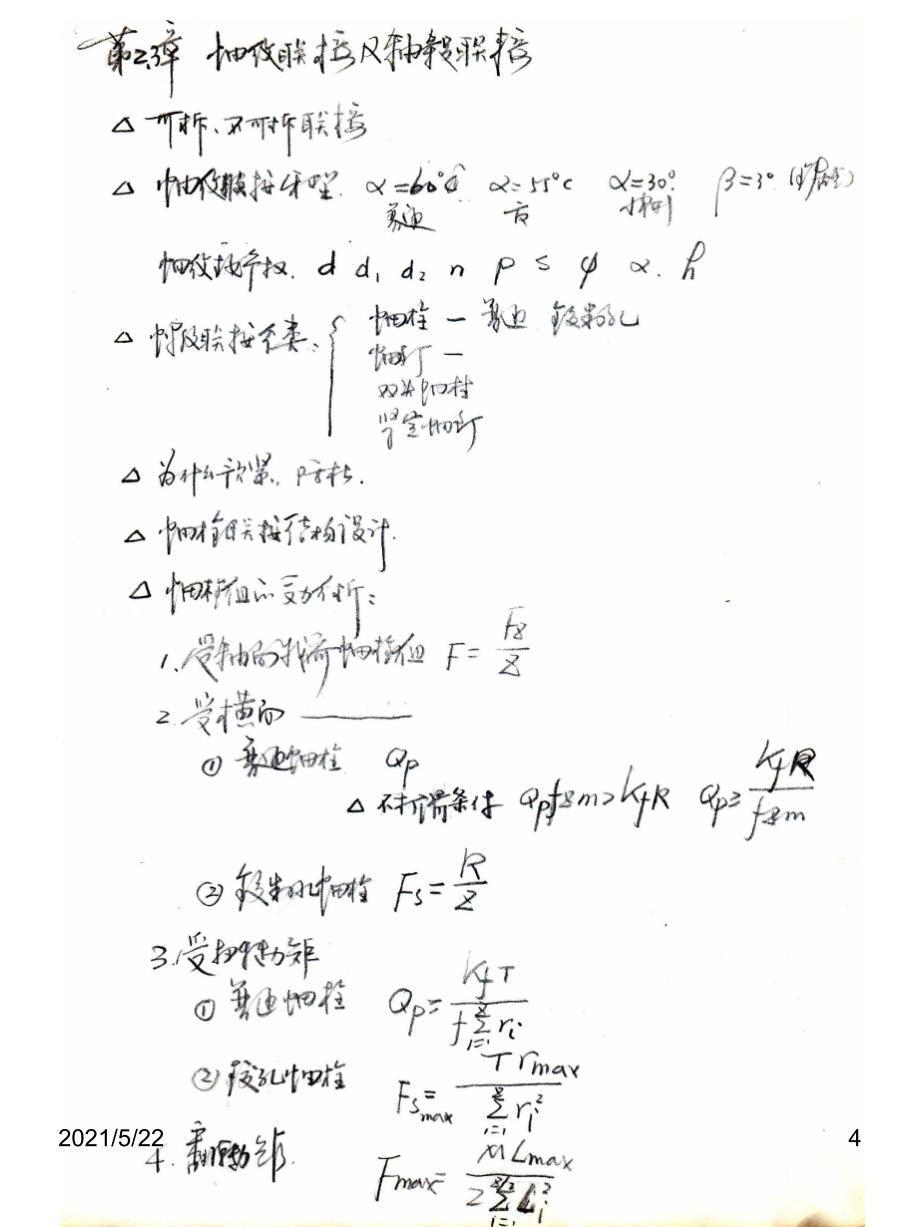 第23章 螺纹联接及轴毂联接
△ 可拆、不可拆联接
△ 螺纹联接牙型. α=60° α=55° α=30° β=3°
普通
梯形
螺纹 d d₁ d₂ n P S ψ α. h
△ 螺纹联接分类: { 螺栓 — 普通 铰制孔
螺钉 —
双头螺柱
紧定螺钉
△ 为什么预紧、防松.
△ 螺栓联接结构设计.
△ 螺栓组的受力分析:
1. 受轴向载荷螺栓组 F = FΣ/Z
2. 受横向 ———
① 普通螺栓 Qp
△ 不打滑条件 Qpfzm>KfR Qp≥KfR/fzm
② 铰制孔螺栓 Fs=R/Z
3. 受扭转力矩
① 普通螺栓 Qp=KfT/f∑ᶻᵢ₌₁rᵢ
② 铰孔螺栓 Fsmax=Trmax/∑ᶻᵢ₌₁rᵢ²
2021/5/22 4
4. 翻倾力矩. Fmax=MLmax/2∑ᶻᐟ²ᵢ₌₁Lᵢ²